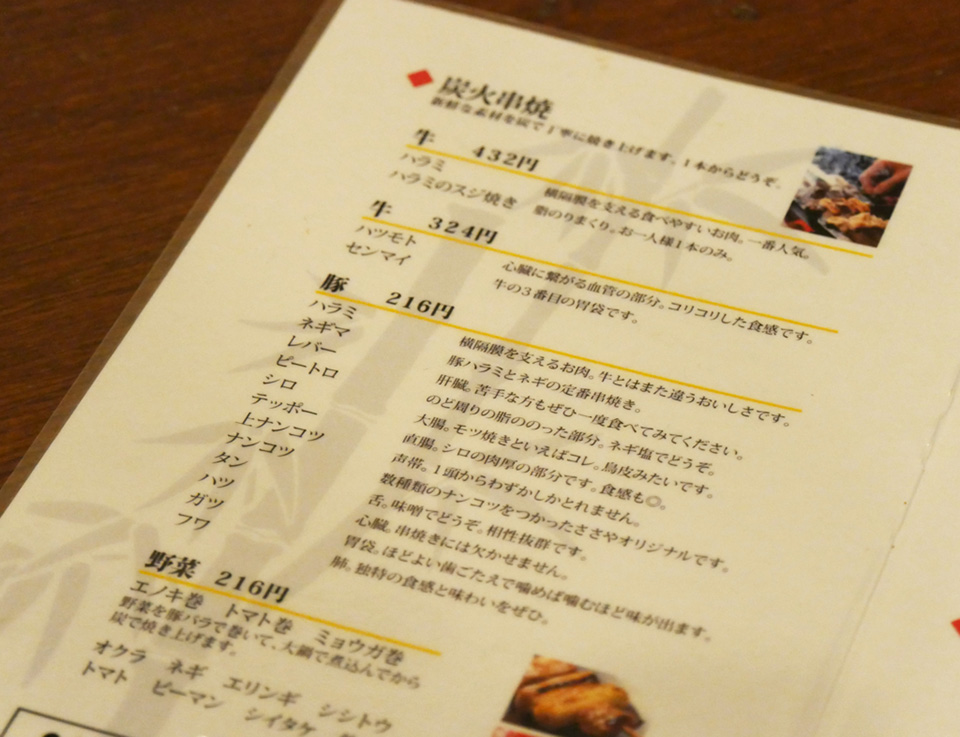 炭火串焼
新鮮な素材を炭で丁寧に焼き上げます。1本からどうぞ。
牛 432円
ハラミ 横隔膜を支える食べやすいお肉。一番人気。
ハラミのスジ焼き 脂のりまくり。お一人様1本のみ。
牛 324円
ハツモト 心臓に繋がる血管の部分。コリコリした食感です。
センマイ 牛の3番目の胃袋です。
豚 216円
ハラミ 横隔膜を支えるお肉。牛とはまた違うおいしさです。
ネギマ 豚ハラミとネギの定番串焼き。
レバー 肝臓。苦手な方もぜひ一度食べてみてください。
ピートロ のど周りの脂ののった部分。ネギ塩でどうぞ。
シロ 大腸。モツ焼きといえばコレ。鳥皮みたいです。
テッポー 直腸。シロの肉厚の部分です。食感も◎。
上ナンコツ 声帯。1頭からわずかしかとれません。
ナンコツ 数種類のナンコツをつかったささやオリジナルです。
タン 舌。味噌でどうぞ。相性抜群です。
ハツ 心臓。串焼きには欠かせません。
ガツ 胃袋。ほどよい歯ごたえで噛めば噛むほど味が出ます。
フワ 肺。独特の食感と味わいをぜひ。
野菜 216円
エノキ巻 トマト巻 ミョウガ巻
野菜を豚バラで巻いて、大鍋で煮込んでから
炭で焼き上げます。
オクラ ネギ エリンギ シシトウ
トマト ピーマン シイタケ